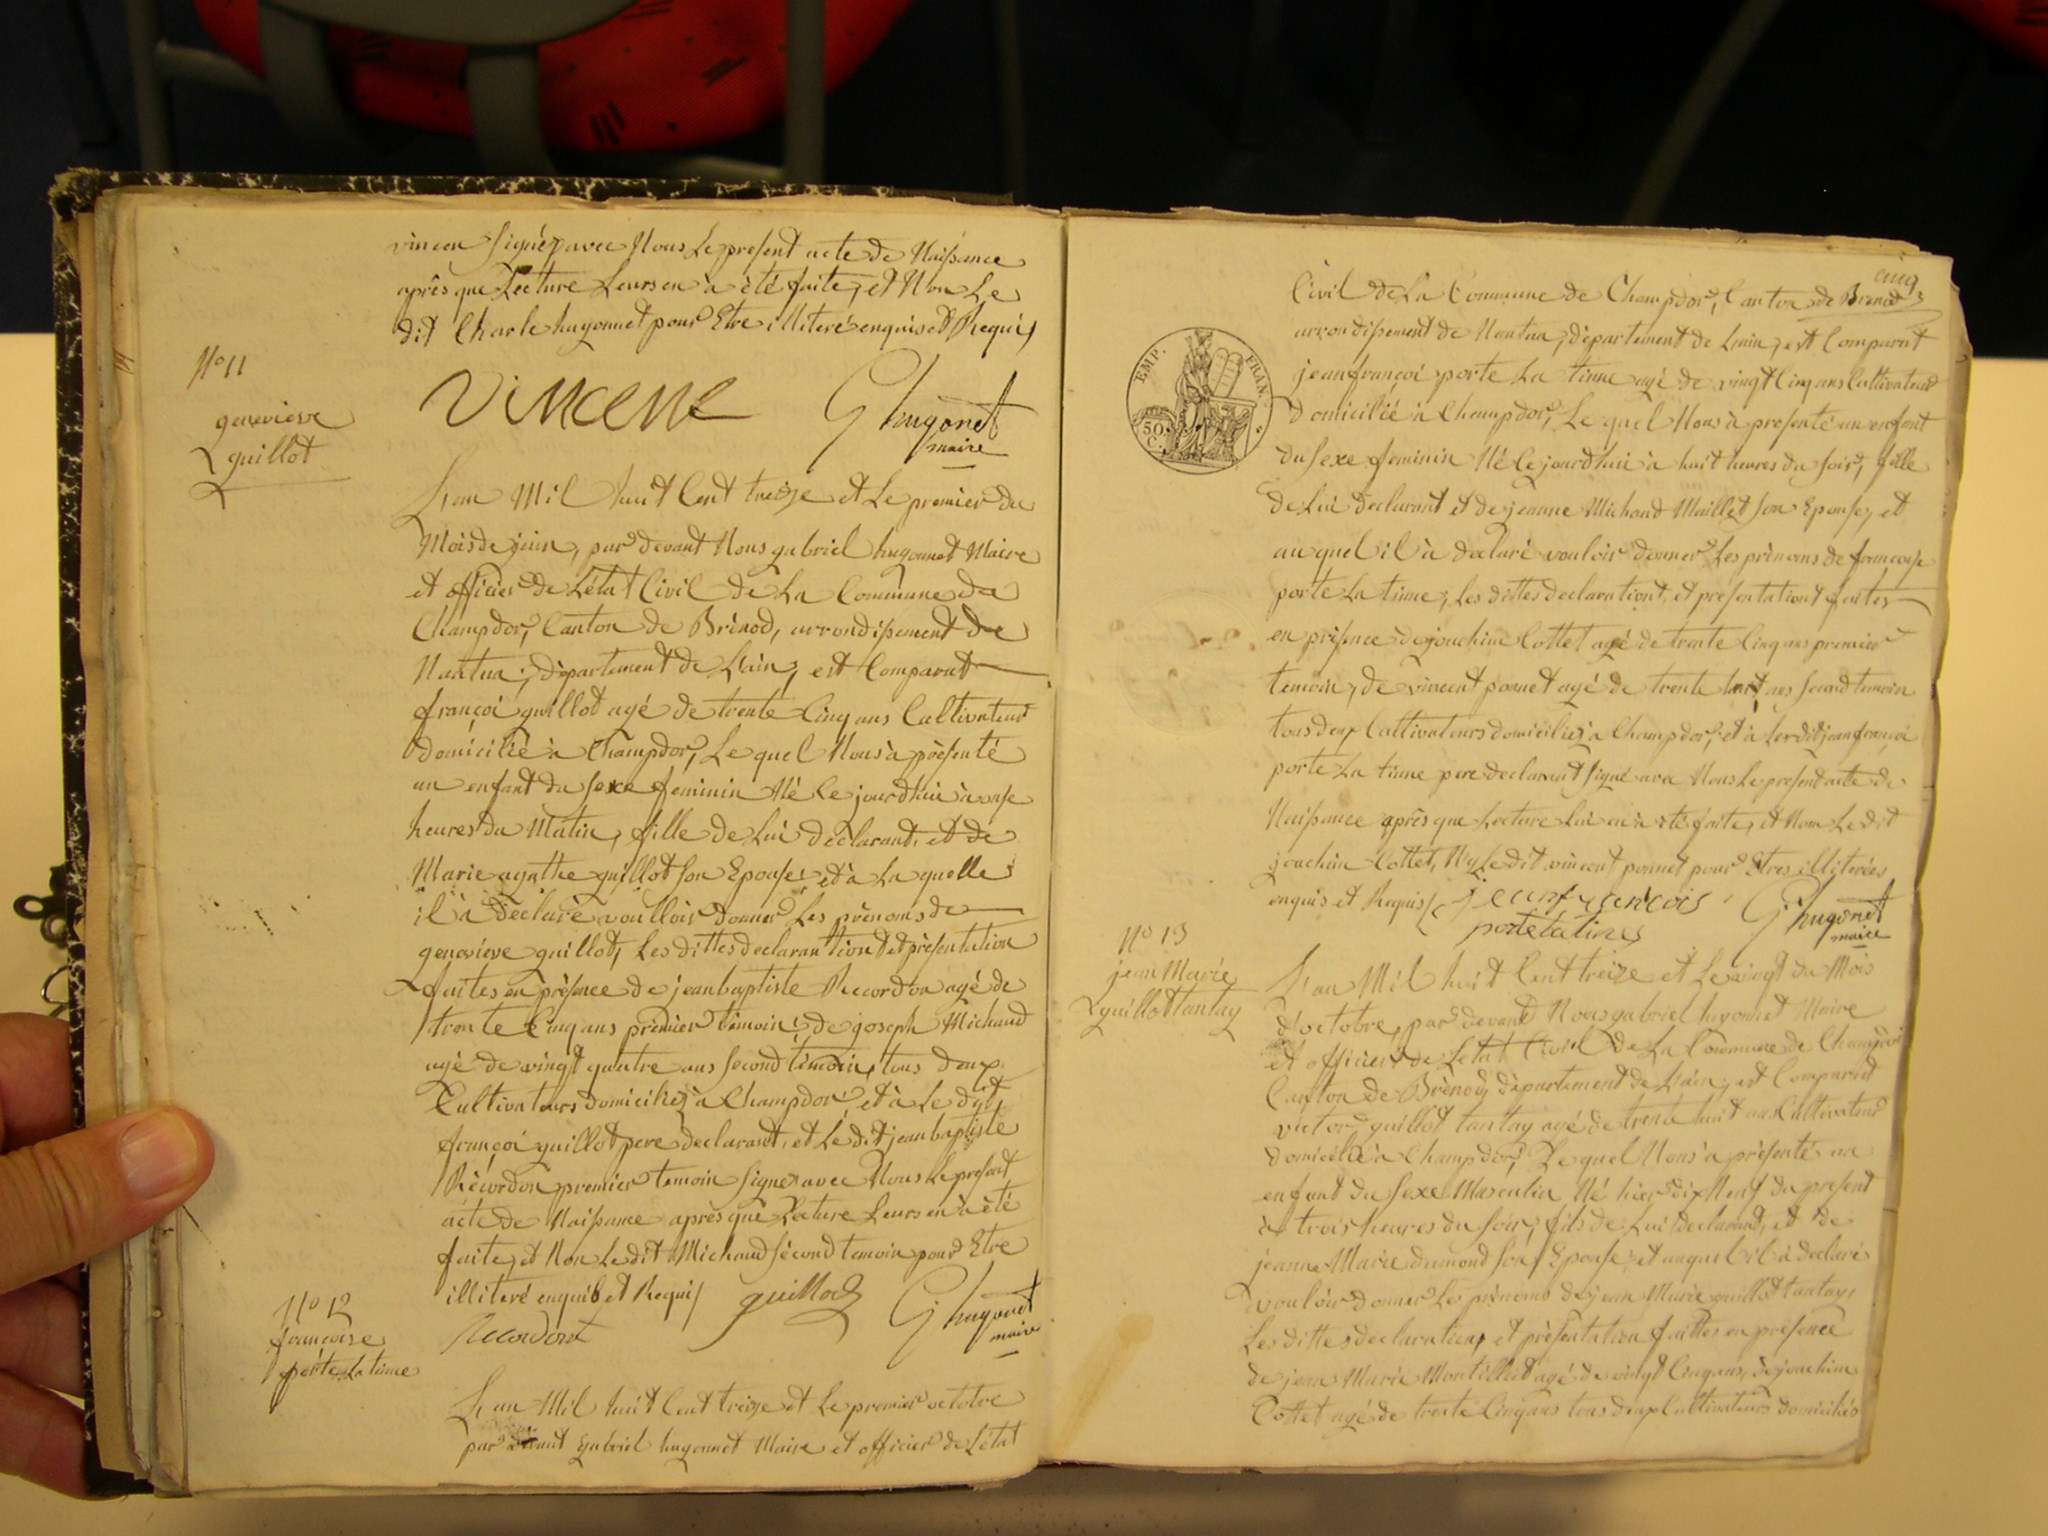 vincen signéz avec Nous Le present acte de Naissance
après que Lecture Leurs en à été faite, et Non Le
dit Charle hugonnet pour Etre illiteré enquis et Requis
Vincent G hugonet
maire
N° 11
genevieve
guillot
L'an Mil huit Cent treize et Le premier du
Mois de juin, par devant Nous gabriel hugonnet Maire
et officier de L'état Civil de La Commune de
Champdor, Canton de Brènod, arrondissement de
Nantua, département de L'ain, est Comparut
françoi guillot agé de trente Cinq ans Cultivateur
domicilié à Champdor, Le quel Nous à présenté
un enfant du sexe feminin Né Ce jourdhui à onze
heures du Matin, fille de Lui déclarant, et de
Marie agathe guillot son Epouse, et à La quelle
il à déclaré voulloir donner Les prénoms de
genevieve guillot, Les dittes declarantiont et présentation
faites en présence de jean baptiste Recordon agé de
trente Cinq ans prémier témoin, de joseph Michaud
agé de vingt quatre ans second témoin, tous deux
Cultivateurs domiciliéz à Champdor, et à Le dit
françoi guillot pere declarant, et Le dit jean baptiste
Récordon premier temoin signez avec Nous Le present
acte de Naissance après que Lecture Leurs en à été
faite, et Non Le dit Michaud sécond temoin pour Etre
illiteré enquis et Requis guillod G hugonet
maire
Recordont
N° 12
françoise
porte La tinne
L'an Mil huit Cent treize et Le premier octobre
par devant gabriel hugonnet Maire et officier de L'état
cinq
Civil de La Commune de Champdor, Canton de Brenod
arrondissement de Nantua, département de L'ain, est Comparut
jean françoi porte La tinne agé de vingt Cinq ans Cultivateur
domicilié à Champdor, Le quel Nous à presenté un enfant
du sexe feminin Né Ce jourdhui à huit heures du soir, fille
de Lui declarant et de jeanne Michaud Maillet son Epouse, et
au quel il à declaré vouloir donner Les prénoms de françoise
porte La tinne, Les dittes declarationt, et présentationt faites
en présence de jouachim Cottet agé de trente Cinq ans premier
temoin, de vincent ponnet agé de trente huit ans second temoin
tous deux Cultivateurs domiciliéz à Champdor, et à Le dit jean françoi
porte La tinne pere declarant signé avec Nous Le present acte de
Naissance après que Lecture Lui en à été faite, et Non Le dit
jouachim Cottet, Ny Le dit vincent ponnet pour Etres illiterées
enquis et Requis jean françois G hugonet
maire
portelatines
EMP. FRAN.
50
C.
N° 13
jean Marie
guillot tantay
L'an Mil huit Cent treize et Le vingt du Mois
d'octobre, par devant Nous gabriel hugonnet Maire
et officier de L'état Civil de La Commune de Champdor
Canton de Brènod, département de L'ain, est Comparut
victor guillot tantay agé de trente huit ans Cultivateur
domicilié à Champdor, Le quel Nous à présenté un
enfant du sexe Masculin Né hier dix Neuf du present
à trois heures du soir, fils de Lui declarant, et de
jeanne Marie dumond son Epouse, et auquel il à declaré
vouloir donner Les prénoms de jean Marie guillot tantay,
Les dittes declaration et présentation faittes en présence
de jean Marie Montillet agé de vingt Cinq ans, de jouachim
Cottet agé de trente Cinq ans tous deux Cultivateurs domiciliés